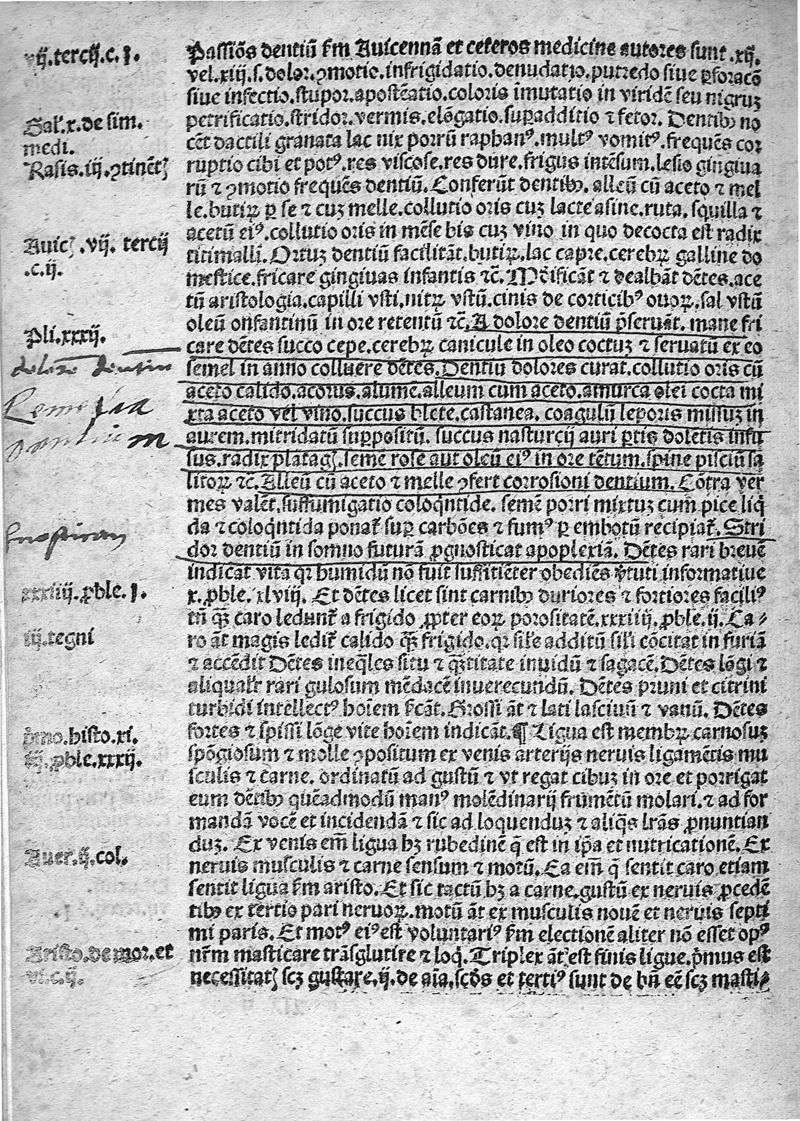 vij.tercij.c.j.
Gal'.x.de sim.
medi.
Rasis.iij.ꝯtinẽtꝭ
Auicẽ.vij. tercij
.c.ij.
Pli.xxxij.
dolorẽ dentium
Remedia
dentium
xxxiiij.ꝓble.j.
iij.tegni
pͥmo.histo.xi.
iij.ꝓble.xxxij.
Auer.ij.col.
Aristo.de mor.et
vi.c.ij.
Passiõs dentiũ ẜm Auicennã et ceteros medicine autores sunt .xij.
vel.xiij.s.dolor.ꝯmotio.infrigidatio.denudatio.putredo siue ꝑforacõ
siue infectio.stupor.apostẽatio.coloris imutatio in viridẽ seu nigruꝫ
petrificatio.stridor.vermis.elõgatio.suꝑadditio ⁊ fetor. Dentibꝰ no
cẽt dactili granata lac nix porrũ raphanꝰ.multꝰ vomitꝰ.frequẽs cor
ruptio cibi et potꝰ.res viscose.res dure.frigus intẽsum.lesio gingiua
rũ ⁊ ꝯmotio frequẽs dentiũ. Conferũt dentibꝰ.alleũ cũ aceto ⁊ mel
le.butiꝝ ꝑ se ⁊ cuꝫ melle.collutio oris cuꝫ lacte asine.ruta.squilla ⁊
acetũ eiꝰ.collutio oris in mẽse bis cuꝫ vino in quo decocta est radix
titimalli. Ortuꝫ dentiũ facilitãt.butiꝝ.lac capre.cerebꝝ galline do
mestice.fricare gingiuas infantis ⁊c̃. Mũdificãt ⁊ dealbãt dẽtes.ace
tũ aristologia.capilli vsti.nitꝝ vstũ.cinis de corticibꝰ ouoꝝ.sal vstũ
oleũ onfantinũ in ore retentũ ⁊c̃. A dolore dentiũ p̃seruãt. mane fri
care dẽtes succo cepe.cerebꝝ canicule in oleo coctuꝫ ⁊ seruatũ ex eo
semel in anno colluere dẽtes. Dentiũ dolores curat.collutio oris cũ
aceto calido.acorus.alumẽ.alleum cum aceto.amurca olei cocta mi
xta aceto vel vino.succus blete.castanea. coagulũ leporis missuꝫ in
aurem.mitridatũ suꝑpositũ. succus nasturcij auri ꝑtis dolẽtis infu
sus.radix platagꝭ.semẽ rose aut oleũ eiꝰ in ore tẽtum.spine pisciũ sa
litoꝝ ⁊c̃. Alleũ cũ aceto ⁊ melle ꝯfert corrosioni dentium. Cõtra ver
mes valẽt.suffumigatio coloqntide. semẽ porri mixtuꝫ cum pice liqͥ
da ⁊ coloqͥntida ponat᷑ suꝑ carbões ⁊ fumꝰ ꝑ embotũ recipiat᷑. Stri
dor dentiũ in somno futurã ꝓgnosticat apoplexiã. Dẽtes rari breuẽ
indicãt vitã qꝛ humidũ nõ fuit sufficiẽter obediẽs v̓tuti informatiue
x.ꝓble.xlviij. Et dẽtes licet sint carnibꝰ duriores ⁊ fortiores faciliꝰ
tñ qꝫ̃ caro ledunt᷑ a frigido ꝓpter eoꝝ porositatẽ.xxxiiij.ꝓble.ij. Ca
ro ãt magis ledit᷑ calido qꝫ̃ frigido.qꝛ sil'e additũ sil'i cõcitat in furiã
⁊ accẽdit Dẽtes ineqͣles situ ⁊ qͣꝫtitate inuidũ ⁊ sagacẽ. Dẽtes lõgi ⁊
aliqualr̃ rari gulosum mẽdacẽ inuerecundũ. Dẽtes pruni et citrini
turbidi intellectꝰ hoĩem p̃dicãt. Grossi ãt ⁊ lati lasciuũ ⁊ vanũ. Dẽtes
fortes ⁊ spissi lõge vite hoĩem indicãt.¶ Ligua est membꝝ carnosuꝫ
spõgiosum ⁊ molle ꝯpositum ex venis arterijs neruis ligamẽtis mu
sculis ⁊ carne. ordinatũ ad gustũ ⁊ vt regat cibuꝫ in ore et porrigat
eum dẽtibꝰ quẽadmodũ manꝰ molẽdinarij frumẽtũ molari.⁊ ad for
mandã vocẽ et incidendã ⁊ sic ad loquenduꝫ ⁊ aliqͣs lr̃as ꝓnuntian
duꝫ. Ex venis em̃ ligua hꝫ rubedinẽ q̃ est in ip̃a et nutricationẽ. Ex
neruis musculis ⁊ carne sensum ⁊ motũ. Ea em̃ q̃ sentit caro etiam
sentit ligua ẜm aristo. Et sic tactũ hꝫ a carne.gustũ ex neruis ꝓcedẽ
tibꝰ ex tertio pari neruoꝝ. motũ ãt ex musculis nouẽ et neruis septi
mi paris. Et motꝰ eiꝰ est voluntariꝰ ẜm electionẽ aliter nõ esset opꝰ
nr̃m masticare trãsglutire ⁊ loqͥ. Triplex ãt est finis ligue.pͥmus est
necessitatꝭ scꝫ gustare.ij.de aĩa.scd̃s et tertiꝰ sunt de bñ eẽ scꝫ masti